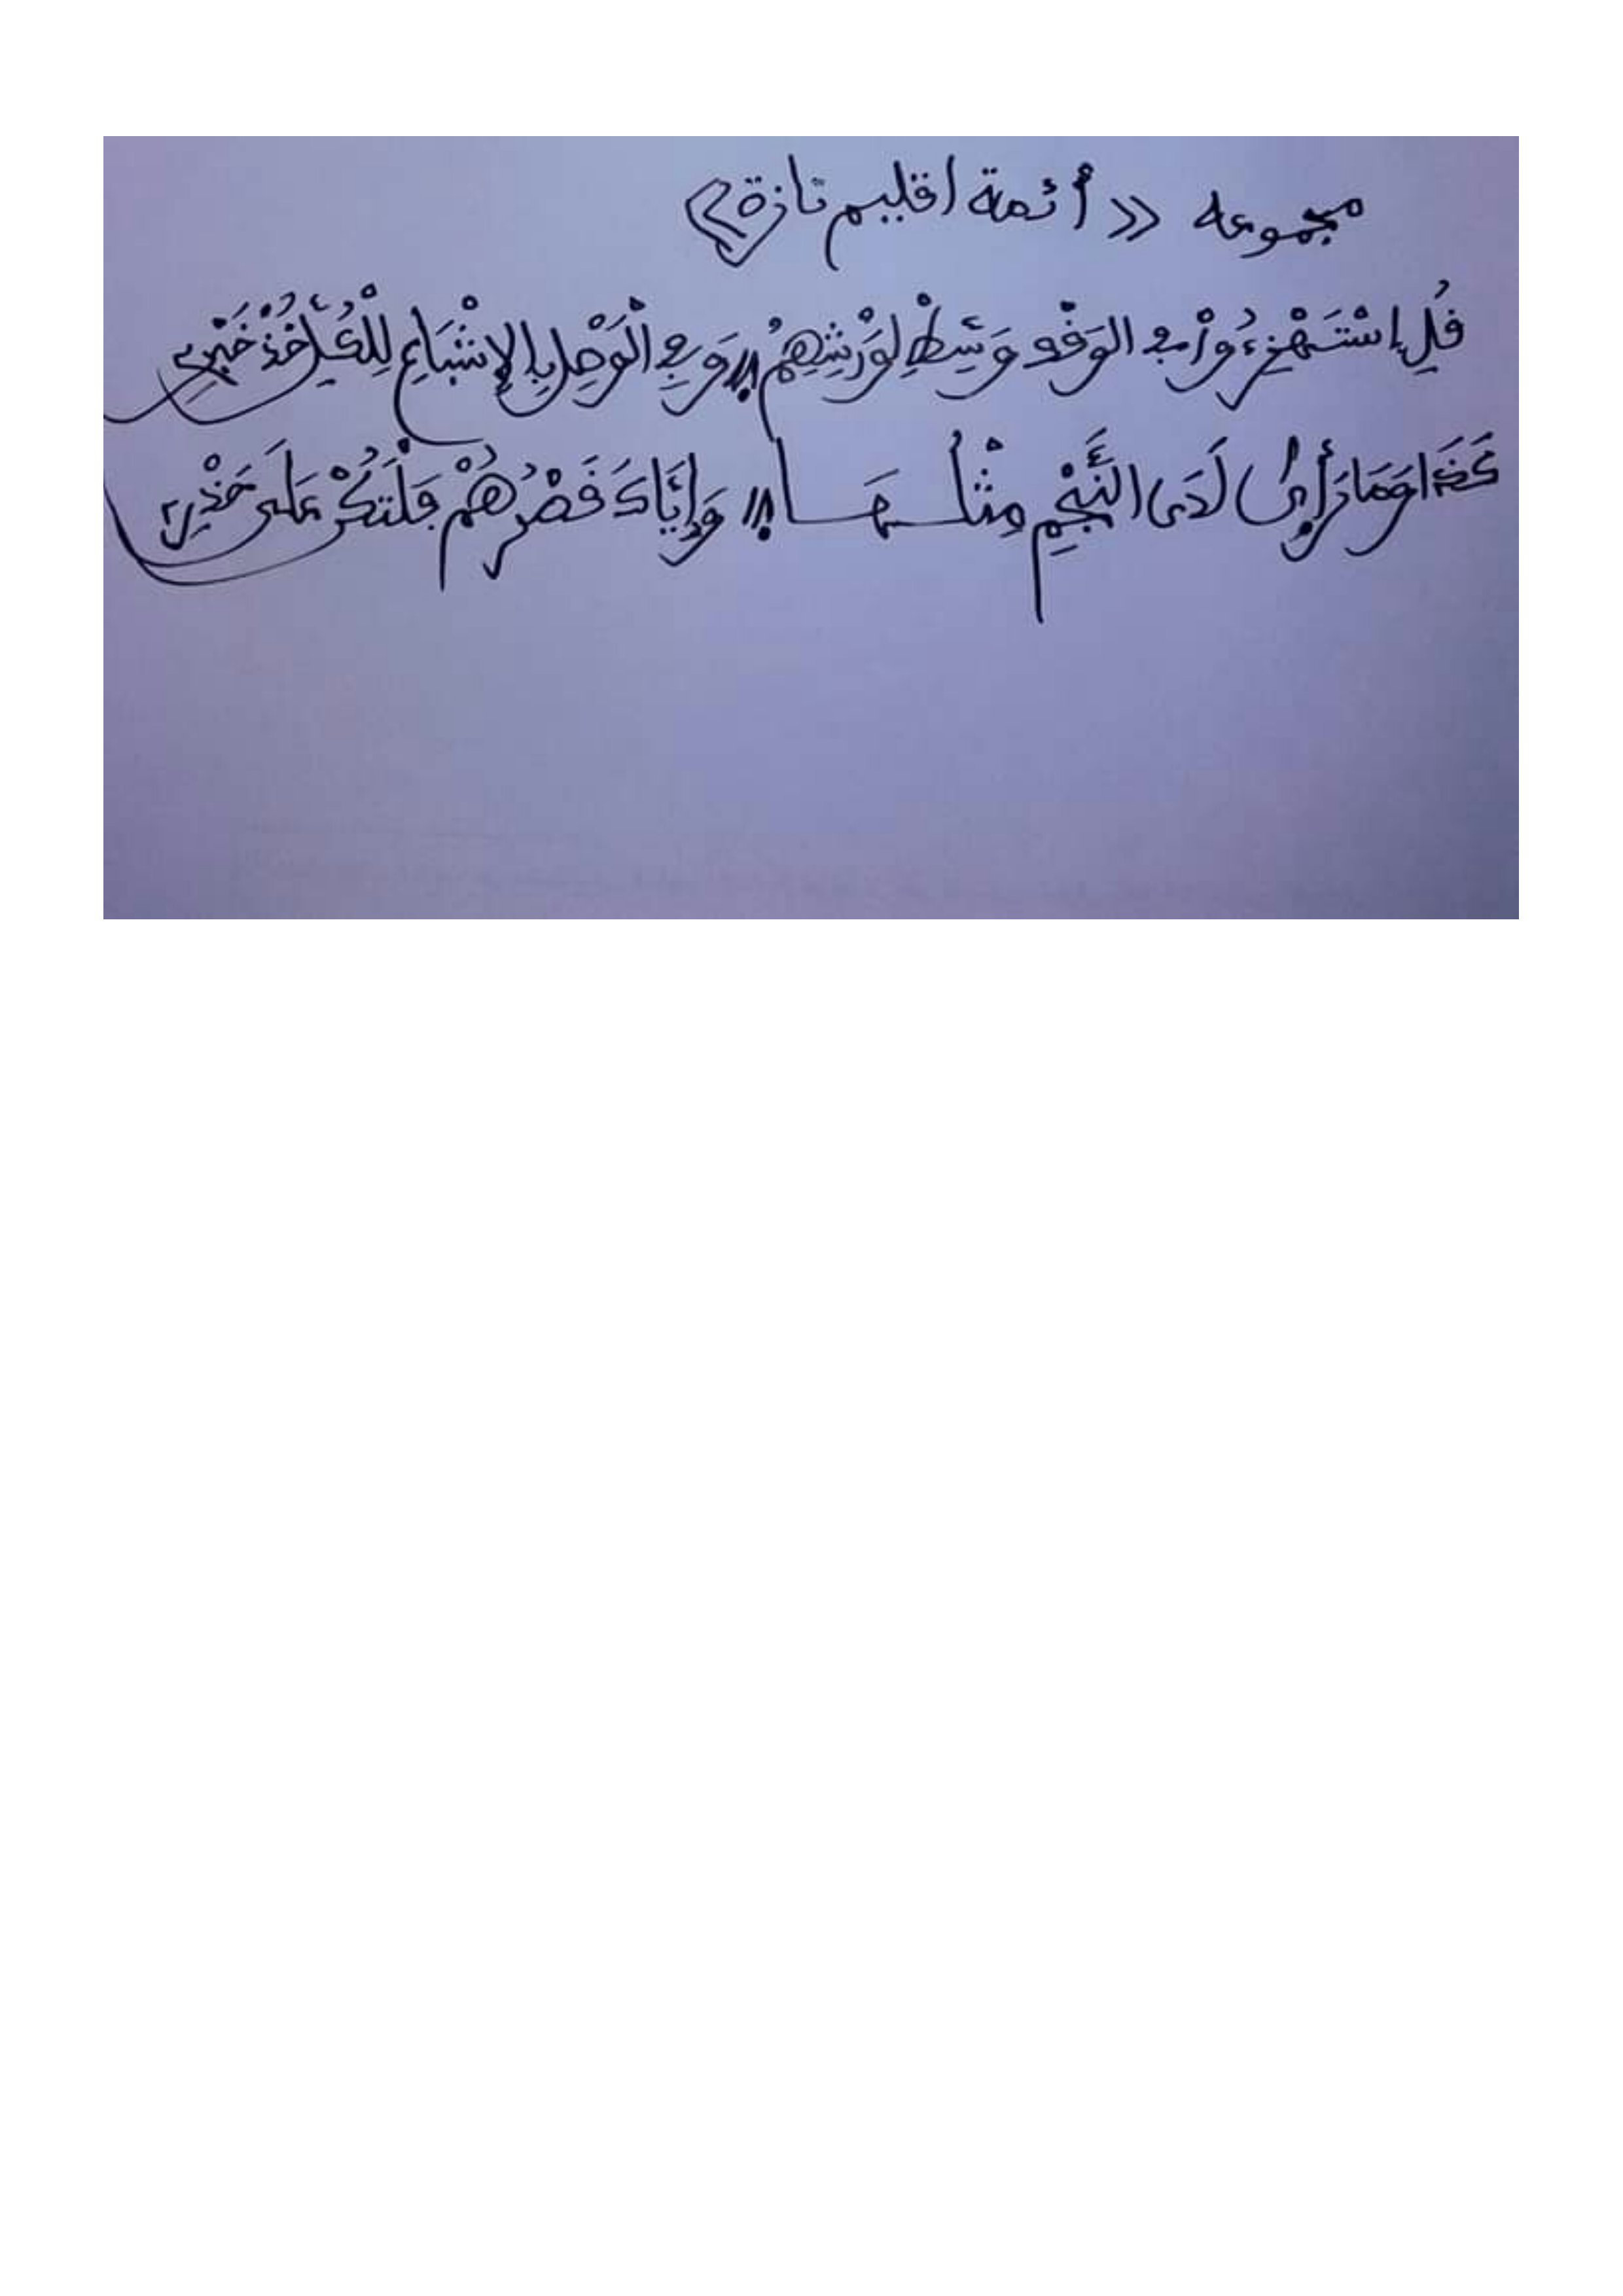 مجموعه << أئمة اقليم تازة >>
قُلِ إسْتَهْزِءُوٓاْ فِي الوَقْفِ وَسِّطْ لِوَرْشِهِمُ || وَفِي الْوَصْلِ بِالإِشْبَاعِ لِلْكُلِّ خُذْ خَبْرِي
كَذَا وَمَا رَأى لَدَى النَّجْمِ مِثْلُـهَـا || وَإِيَّاكَ قَصْرُهُمْ فَلْتَكُنْ عَلَى حَذْرِ